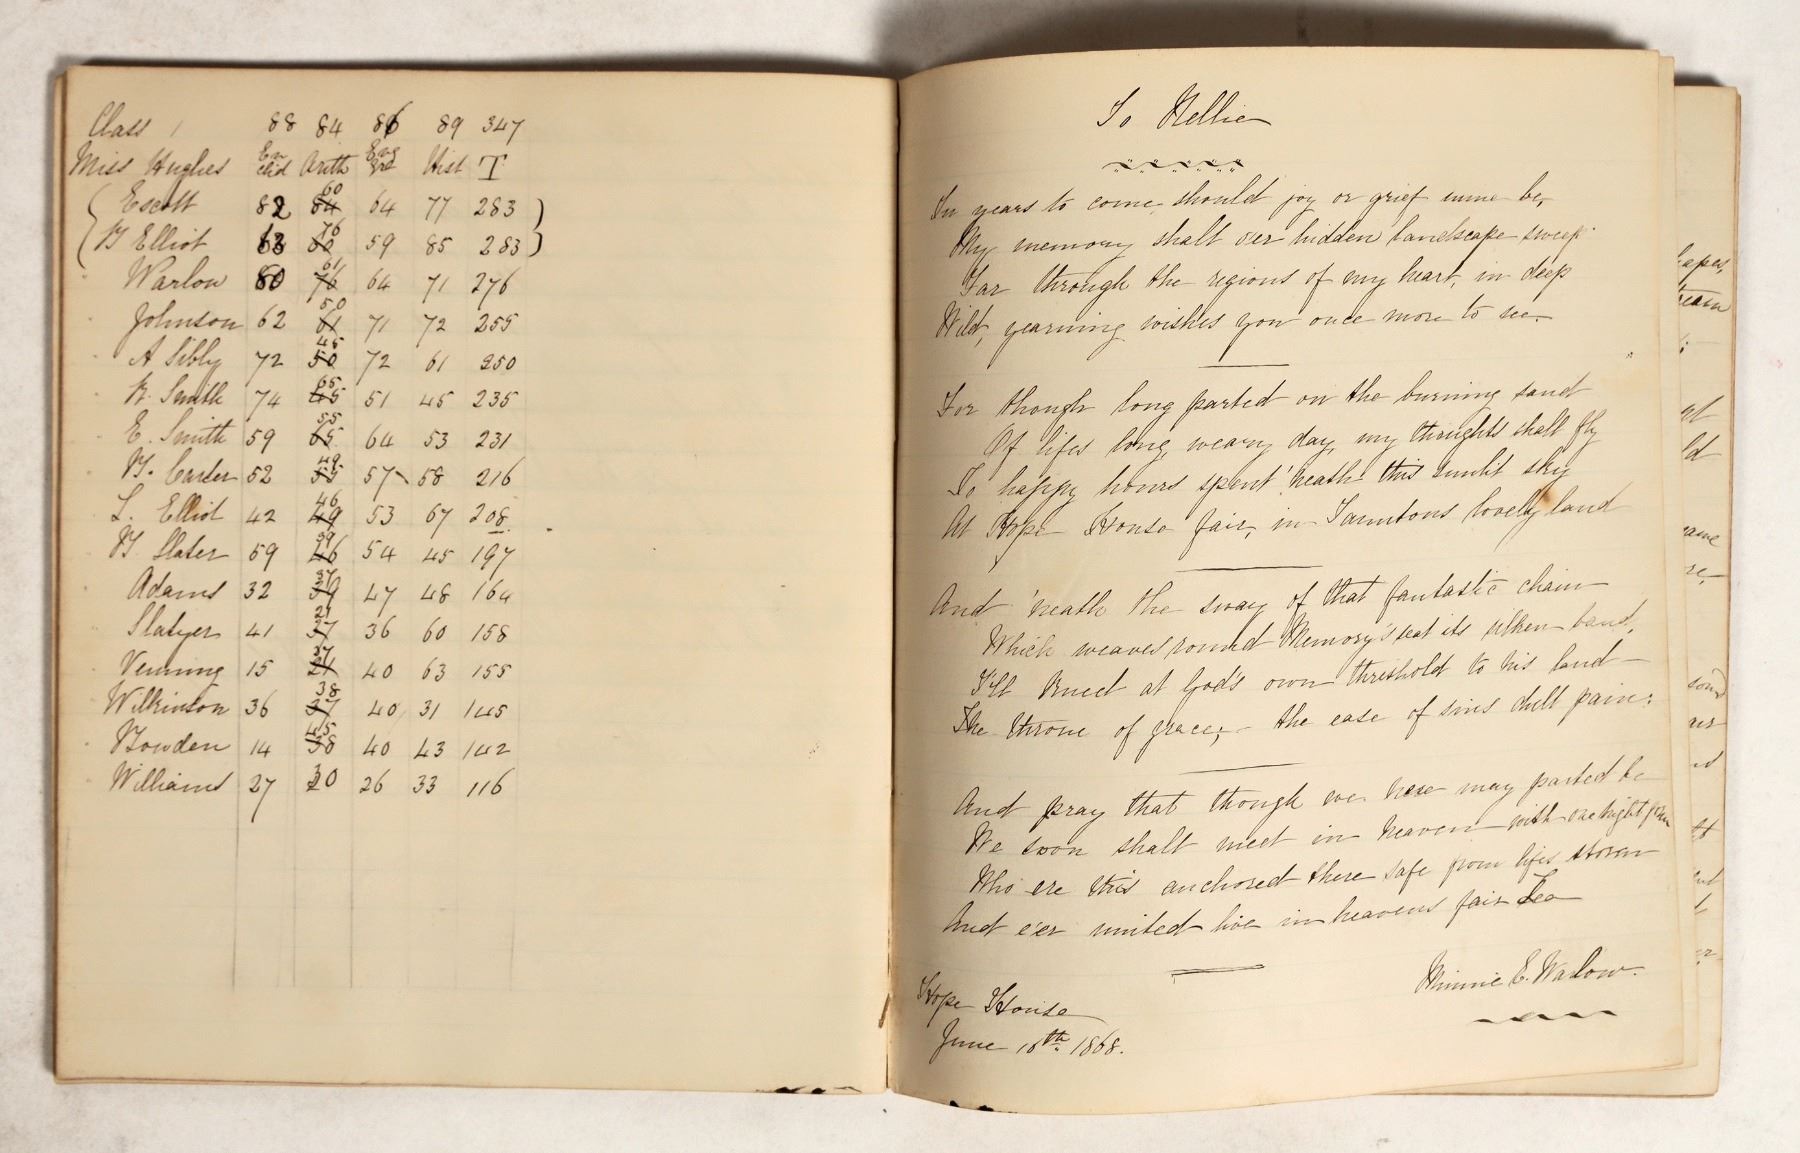 Class 1 88 84 86 89 347
Miss Hughes Eu clid Arith Eng gra Hist T
Escott 82 60 64 77 283
B Elliot 63 76 59 85 283
Warlow 80 61 64 71 276
Johnson 62 50 71 72 255
A Sibly 72 45 72 61 250
B. Smith 74 65 51 45 235
E. Smith 59 55 64 53 231
B. Carter 52 49 57 58 216
L. Elliot 42 46 53 67 208
B. Slater 59 39 54 45 197
Adams 32 37 47 48 164
Slatyer 41 21 36 60 158
Venning 15 37 40 63 155
Wilkinson 36 38 40 31 145
Bowden 14 45 40 43 142
Williams 27 30 26 33 116
To Nellie
In years to come, should joy or grief mine be,
My memory shall o'er hidden landscape sweep
Far through the regions of my heart, in deep
Wild, yearning wishes you once more to see.
For though long parted on the burning sand
Of lifes long, weary, day, my thoughts shall fly
To happy hours spent 'neath this sunlit sky
At Hope House fair, in Tauntons lovely land
And 'neath the sway of that fantastic chain
Which weaves round Memory's seat its silken band,
I'll kneel at God's own threshold to his land
The throne of grace; - the ease of sins dull pain:
And pray that though we here may parted be
We soon shall meet in heaven with one bright
Who ere this anchored there safe from lifes storm
And e'er united live in heavens fair Lea
Minnie E. Warlow.
Hope House
June 16th 1868.